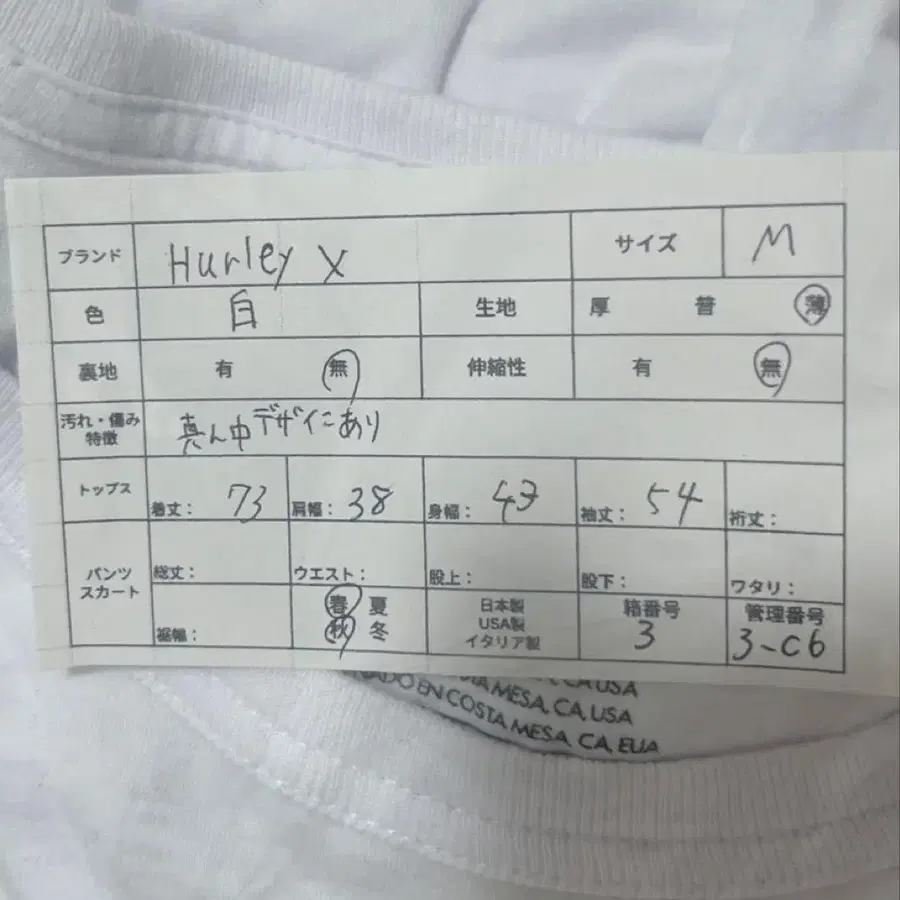 ブランド Hurley X サイズ M
色 白 生地 厚 普 薄
裏地 有 無 伸縮性 有 無
汚れ・傷み
特徴 真ん中デザインあり
トップス 着丈: 73 肩幅: 38 身幅: 43 袖丈: 54 裄丈:
パンツ
スカート 総丈: ウエスト: 股上: 股下: ワタリ:
裾幅: 春 夏 秋 冬 日本製 USA製 イタリア製 箱番号 3 管理番号 3-C6
CA USA
MESA, CA, USA
EN COSTA MESA, CA, EUA